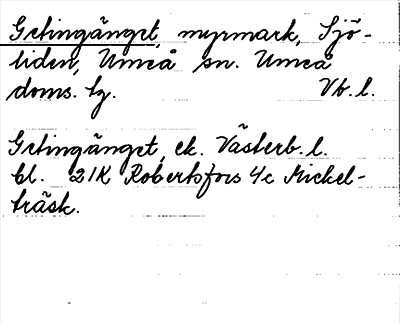 Getingänget, myrmark, Sjö-
liden, Umeå sn. Umeå
doms. hg. Vb. l.
Getingänget, ek. Västerb. l.
bl. 21K Robertsfors 4/c Mickel-
träsk.